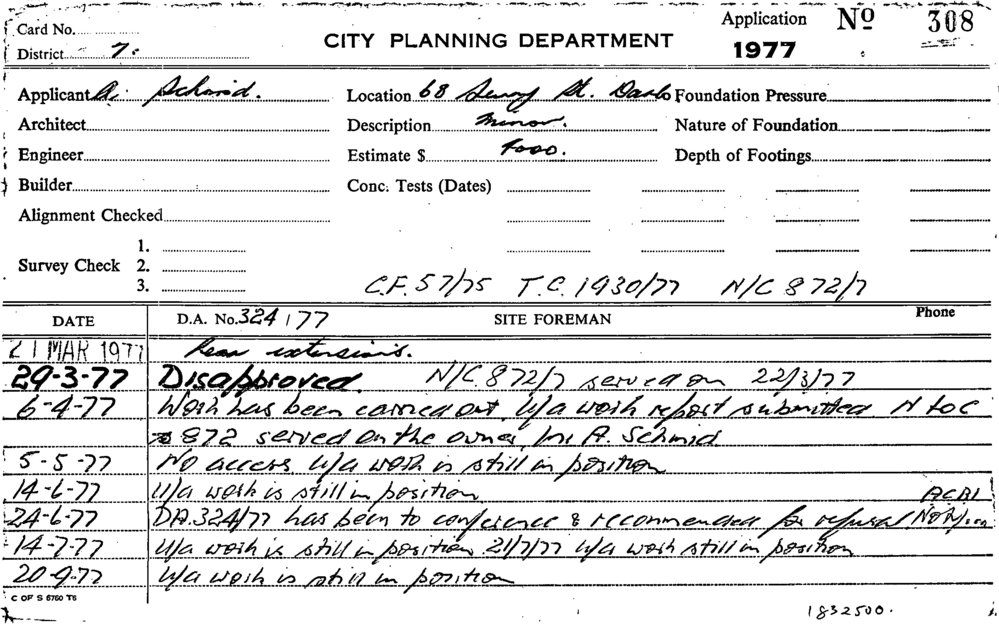 Card No. Application No 308
District 7. CITY PLANNING DEPARTMENT 1977
Applicant A. Schmid. Location 68 St. Darlo Foundation Pressure
Architect Description Minor. Nature of Foundation
Engineer Estimate $ 4000. Depth of Footings
Builder Conc. Tests (Dates)
Alignment Checked
1.
Survey Check 2.
3.
C.F. 57/75 T.C. 1930/77 N/C 872/7
DATE D.A. No. 324/77 SITE FOREMAN Phone
21 MAR 1977 Rear extensions.
29-3-77 Disapproved. N/C 872/7 served on 22/3/77
6-4-77 Work has been carried out, u/a work report submitted N to C
872 served on the owner, Mr A. Schmid
5-5-77 No access u/a work is still in position
14-6-77 u/a work is still in position
24-6-77 DA.324/77 has been to conference & recommended for refusal
14-7-77 u/a work is still in position 21/7/77 u/a work still in position
20-9-77 u/a work is still in position
C OF S 6760 T6
1832500.